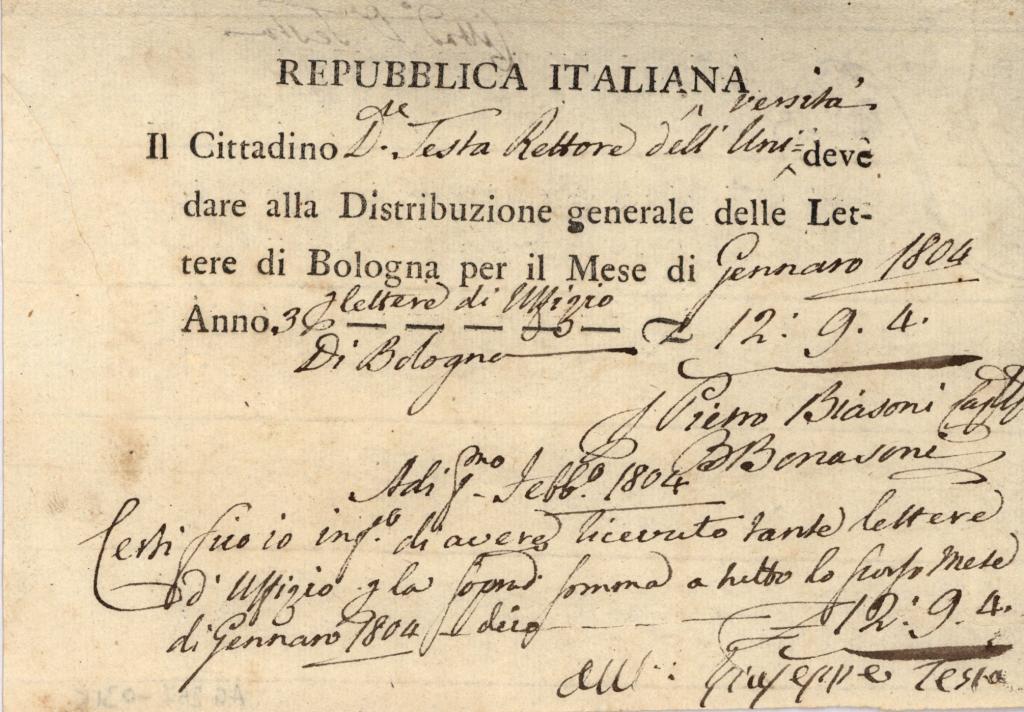 REPUBBLICA ITALIANA
versità
Il Cittadino D.re Testa Rettore dell' Uni= deve
dare alla Distribuzione generale delle Let-
tere di Bologna per il Mese di Gennaro 1804
Anno 3 p lettere di Uffizio
Di Bologna £ 12: 9. 4.
Pietro Biasoni
Bonasoni
Adi p.mo Febb.o 1804
Certifico io inf.o di avere ricevuto tante lettere
d'Uffizio p la soprad. somma a tutto lo scorso Mese
di Gennaro 1804 dico £ 12: 9. 4.
Giuseppe Testa